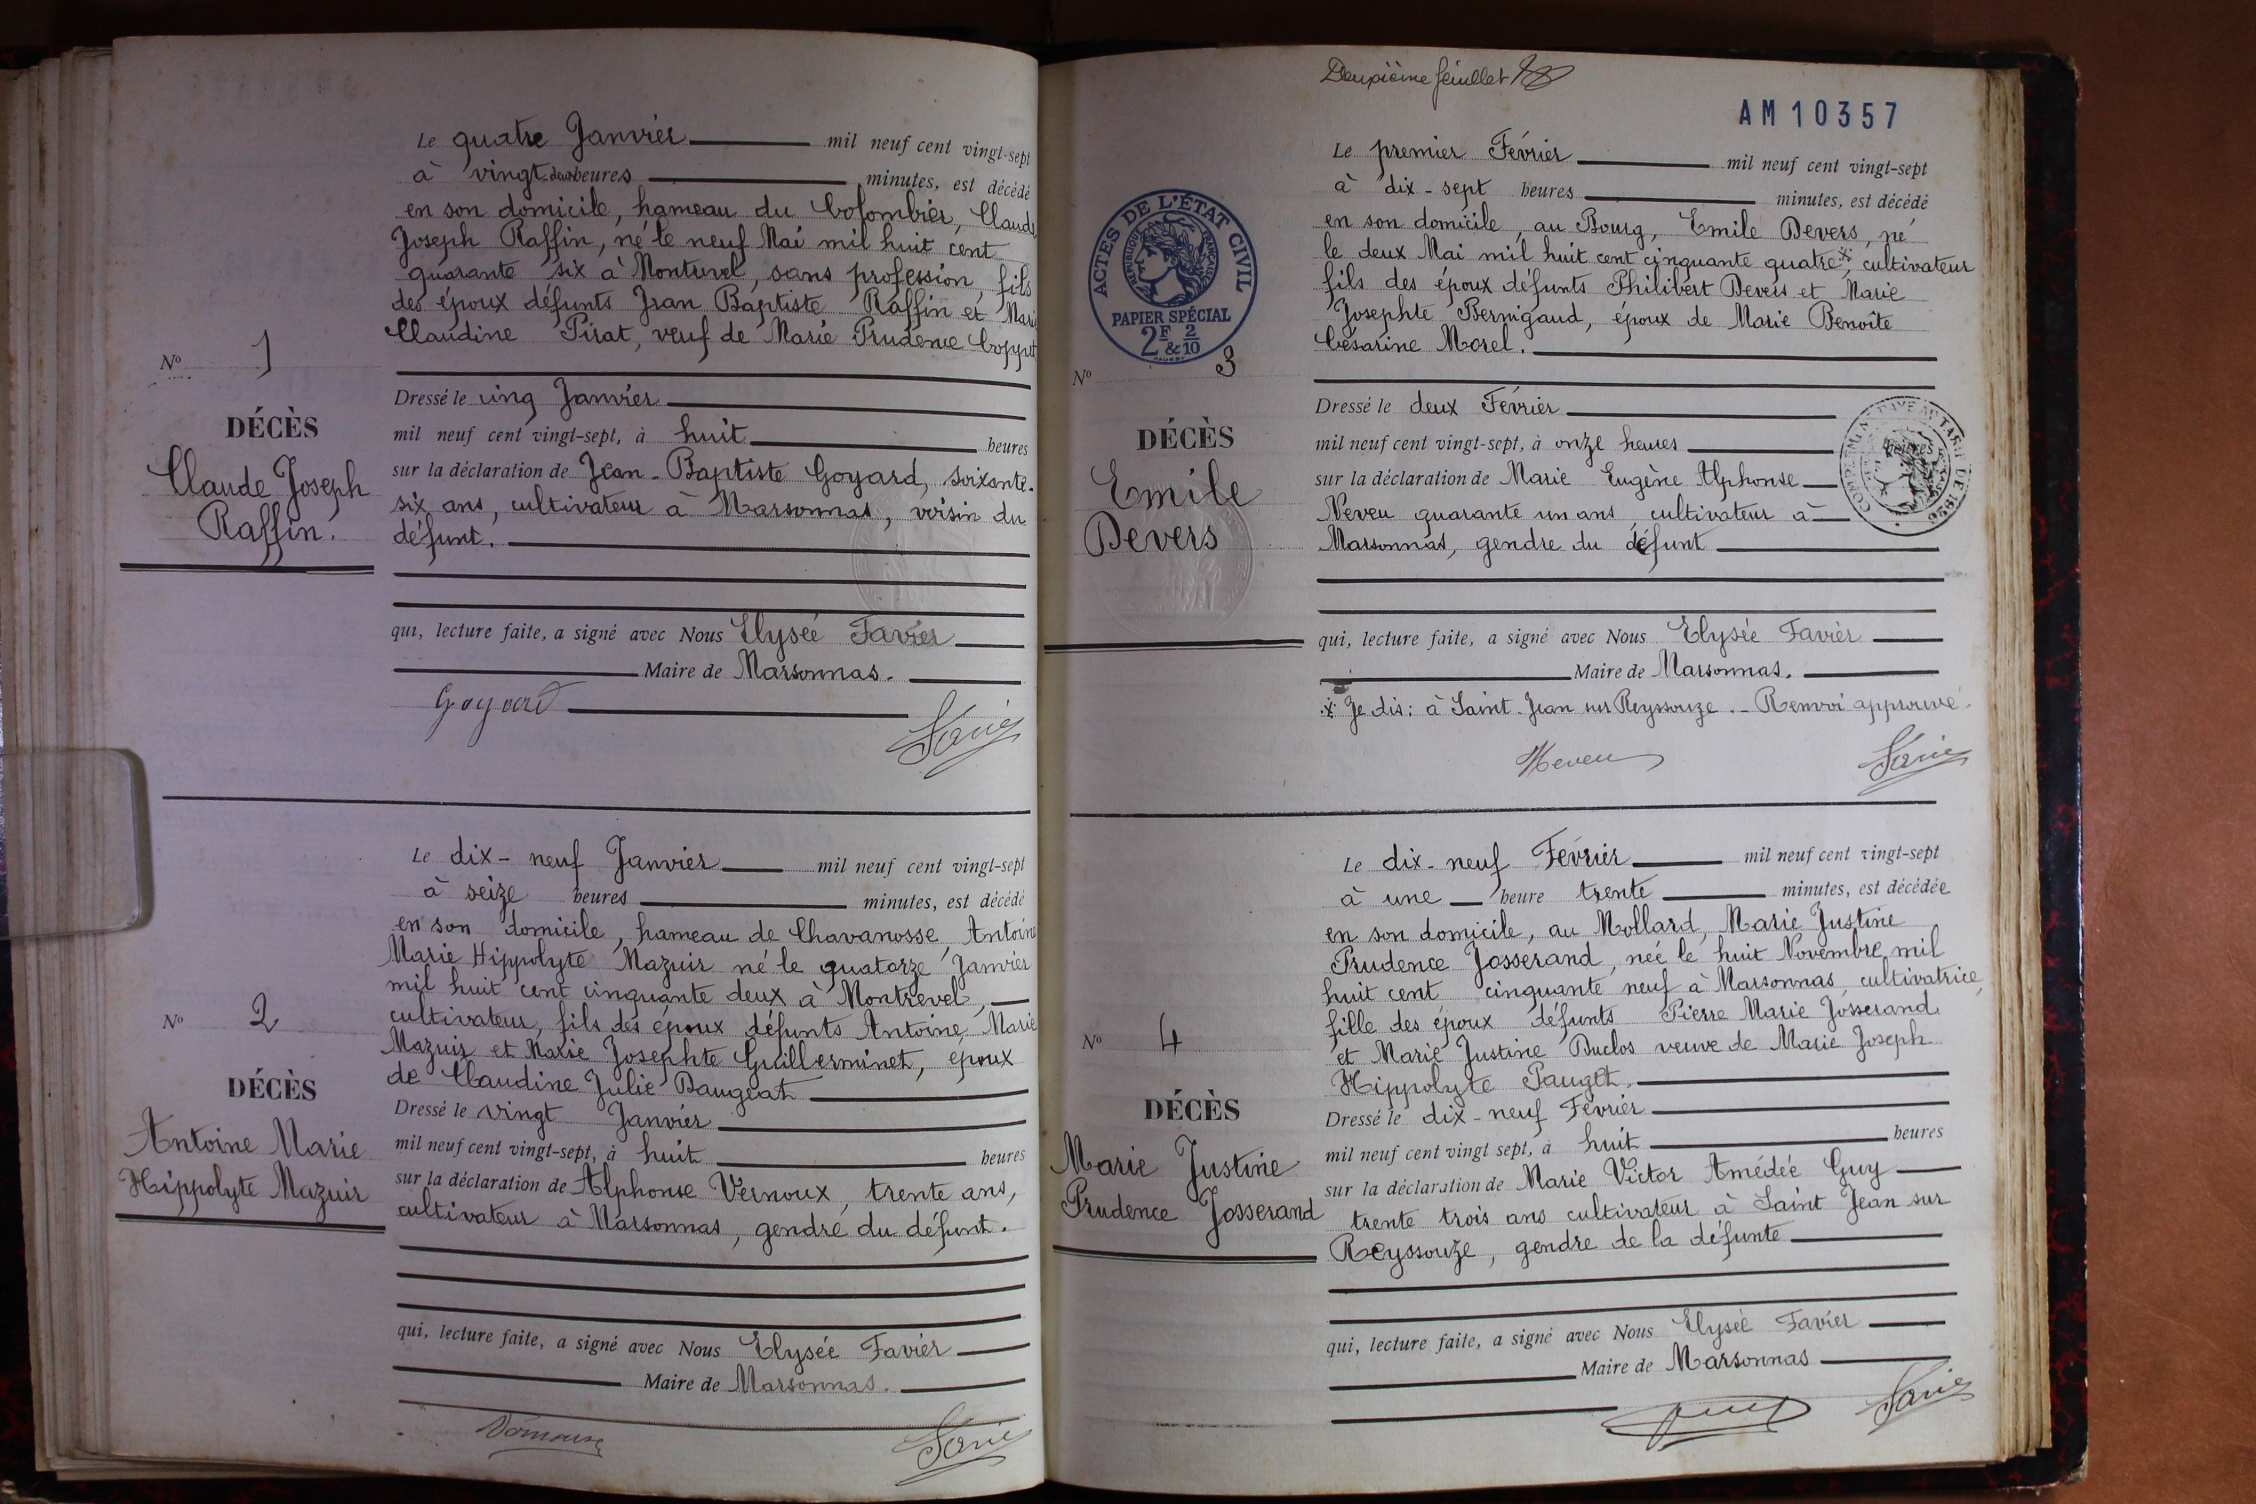 Le quatre Janvier mil neuf cent vingt-sept
à vingt-deux heures minutes, est décédé
en son domicile, hameau du Colombier, Claude
Joseph Raffin, né le neuf Mai mil huit cent
quarante six à Monturel, sans profession, fils
des époux défunts Jean Baptiste Raffin et Marie
Claudine Pirat, veuf de Marie Prudence
Nº 1
DÉCÈS
Claude Joseph
Raffin.
Dressé le cinq Janvier
mil neuf cent vingt-sept, à huit heures
sur la déclaration de Jean-Baptiste Goyard, soixante-
six ans, cultivateur à Marsonnas, voisin du
défunt.
qui, lecture faite, a signé avec Nous Elysée Favier
Maire de Marsonnas.
Goyard
Favier
Le dix-neuf Janvier mil neuf cent vingt-sept
à seize heures minutes, est décédé
en son domicile, hameau de Chavanosse, Antoine
Marie Hippolyte Mazuir né le quatorze Janvier
mil huit cent cinquante deux à Montrevel,
cultivateur, fils des époux défunts Antoine, Marie
Mazuir et Marie Josephte Guillerminet, époux
de Claudine Julie Baugeat
Nº 2
DÉCÈS
Antoine Marie
Hippolyte Mazuir
Dressé le vingt Janvier
mil neuf cent vingt-sept, à huit heures
sur la déclaration de Alphonse Vernoux, trente ans,
cultivateur à Marsonnas, gendre du défunt.
qui, lecture faite, a signé avec Nous Elysée Favier
Maire de Marsonnas.
Favier
Deuxième feuillet
AM10357
ACTES DE L'ÉTAT CIVIL
RÉPUBLIQUE FRANÇAISE
PAPIER SPÉCIAL
2F & 2/10
Le premier Février mil neuf cent vingt-sept
à dix-sept heures minutes, est décédé
en son domicile, au Bourg, Emile Devers, né
le deux Mai mil huit cent cinquante quatre*, cultivateur
fils des époux défunts Philibert Devers et Marie
Josephte Bernigaud, époux de Marie Benoîte
Césarine Morel.
Nº 3
DÉCÈS
Emile
Devers
Dressé le deux Février
mil neuf cent vingt-sept, à onze heures heures
sur la déclaration de Marie Eugène Alphonse
Neveu quarante un ans, cultivateur à
Marsonnas, gendre du défunt
qui, lecture faite, a signé avec Nous Elysée Favier
Maire de Marsonnas.
* Je dis: à Saint-Jean sur Reyssouze.- Renvoi approuvé.
Neveu
Favier
Le dix-neuf Février mil neuf cent vingt-sept
à une heure trente minutes, est décédée
en son domicile, au Mollard, Marie Justine
Prudence Josserand, née le huit Novembre mil
huit cent cinquante neuf à Marsonnas, cultivatrice,
fille des époux défunts Pierre Marie Josserand
et Marie Justine Buclos veuve de Marie Joseph
Hippolyte Pauget.
Nº 4
DÉCÈS
Marie Justine
Prudence Josserand
Dressé le dix-neuf Février
mil neuf cent vingt sept, à huit heures
sur la déclaration de Marie Victor Amédée Guy
trente trois ans cultivateur à Saint Jean sur
Reyssouze, gendre de la défunte
qui, lecture faite, a signé avec Nous Elysée Favier
Maire de Marsonnas
Favier